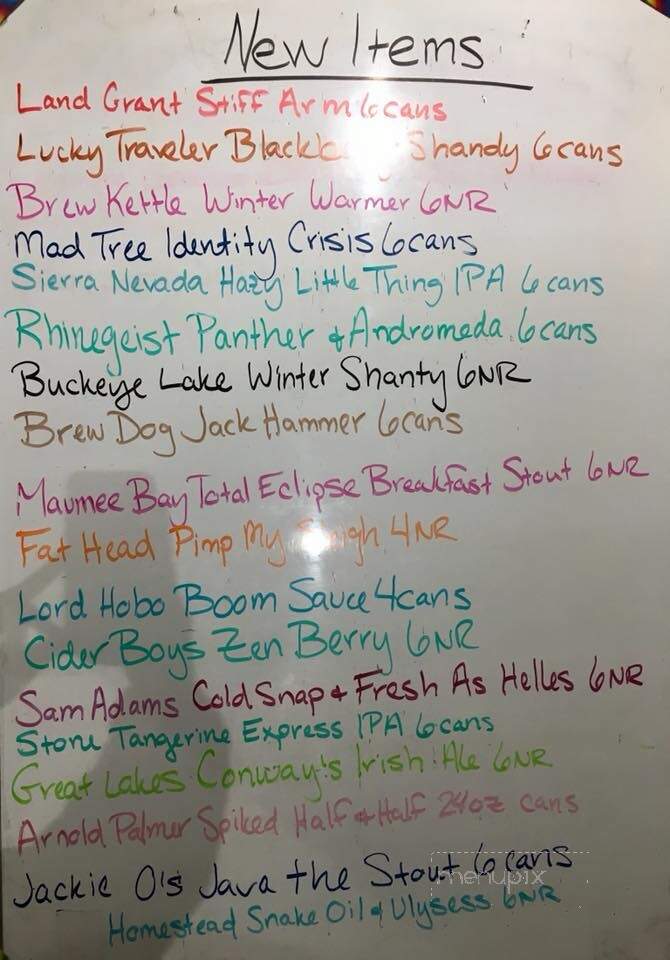 New Items
Land Grant Stiff Arm 6cans
Lucky Traveler Shandy 6cans
Brew Kettle Winter Warmer 6NR
Mad Tree Identity Crisis 6cans
Sierra Nevada Hazy Little Thing IPA 6cans
Rhinegeist Panther & Andromeda 6cans
Buckeye Lake Winter Shanty 6NR
Brew Dog Jack Hammer 6cans
Maumee Bay Total Eclipse Breakfast Stout 6NR
Fat Head Pimp My 4NR
Lord Hobo Boom Sauce 4cans
Cider Boys Zen Berry 6NR
Sam Adams Cold Snap & Fresh As Helles 6NR
Stone Tangerine Express IPA 6cans
Great Lakes Conway's Irish Ale 6NR
Arnold Palmer Spiked Half & Half 24oz cans
Jackie O's Java the Stout 6cans
menupix
Homestead Snake Oil & Ulysess 6NR